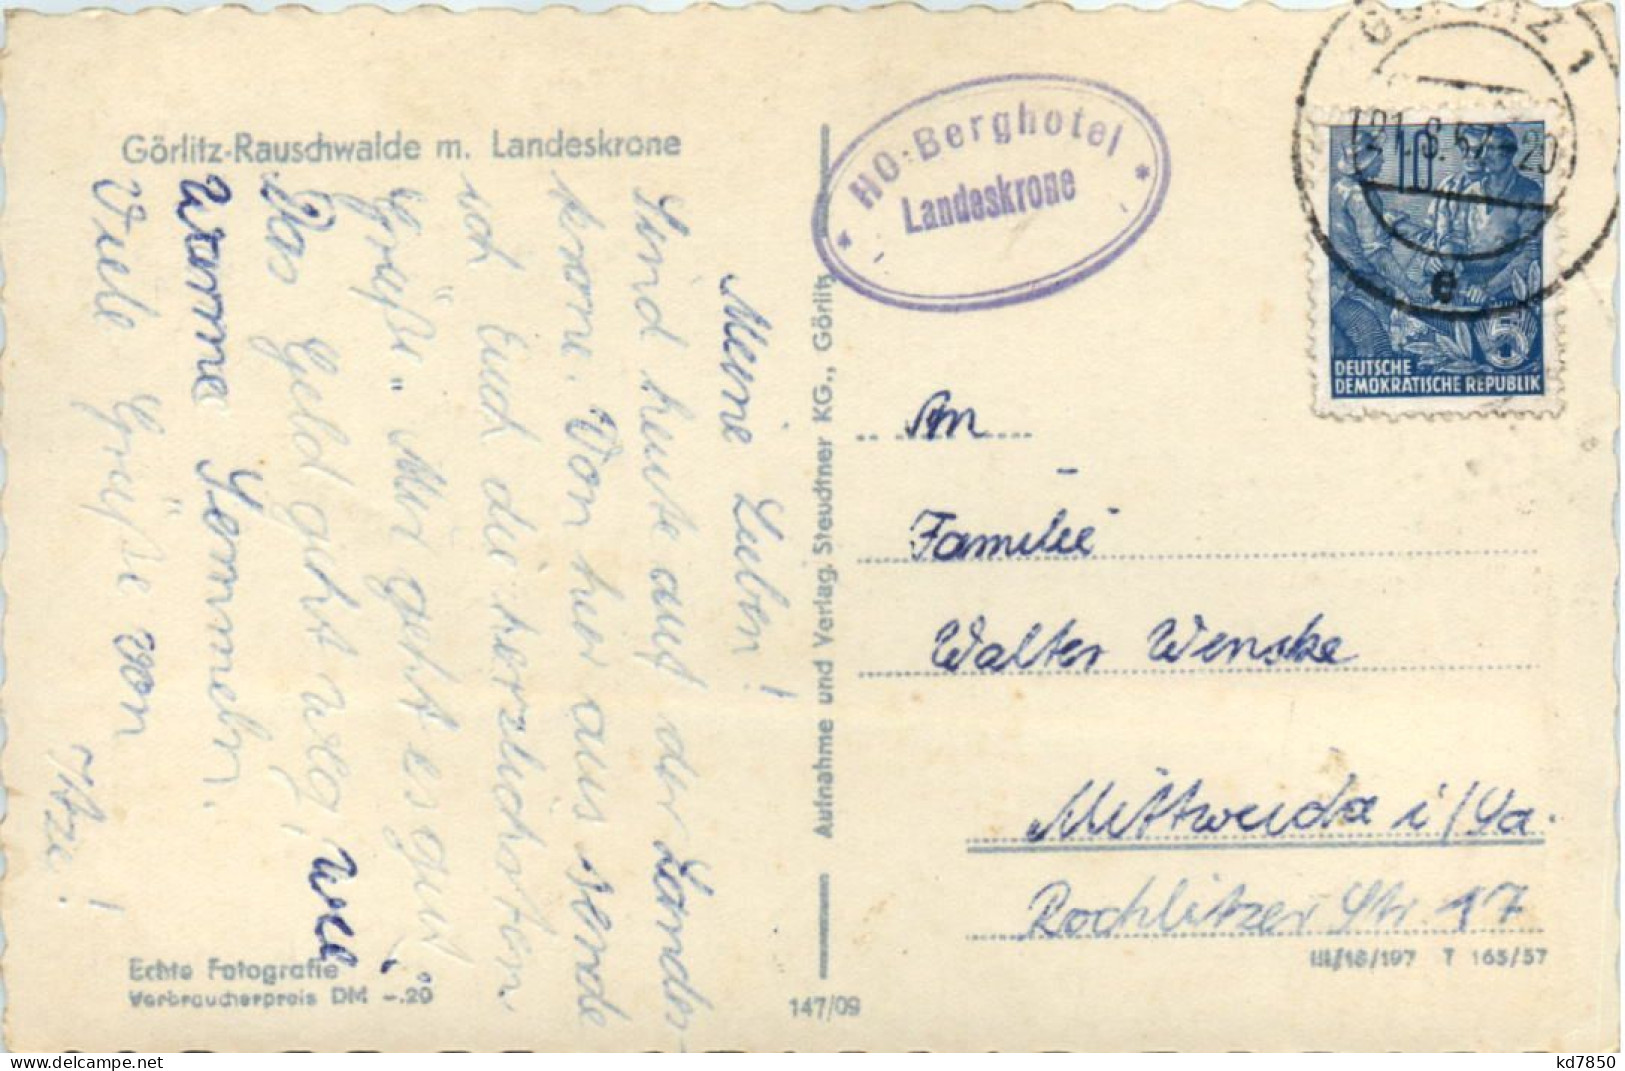 Görlitz-Rauschwalde m. Landeskrone
Meine Lieben!
Sind heute auf der Landes-
krone. Von hier aus sende
ich Euch die herzlichsten
Grüße. Mir geht es gut.
Das Geld geht weg, wie
warme Semmeln.
Viele Grüße von
Echte Fotografie
Verbraucherpreis DM -.20
147/09
Aufnahme und Verlag. Steudtner KG., Görlitz
* HO-Berghotel *
Landeskrone
GÖRLITZ 1
e
10
5
DEUTSCHE
DEMOKRATISCHE REPUBLIK
An
Familie
Walter Wenske
Mittweida i/Sa.
Rochlitzer Str. 17
III/18/197 T 165/57
kd7850
www.delcampe.net